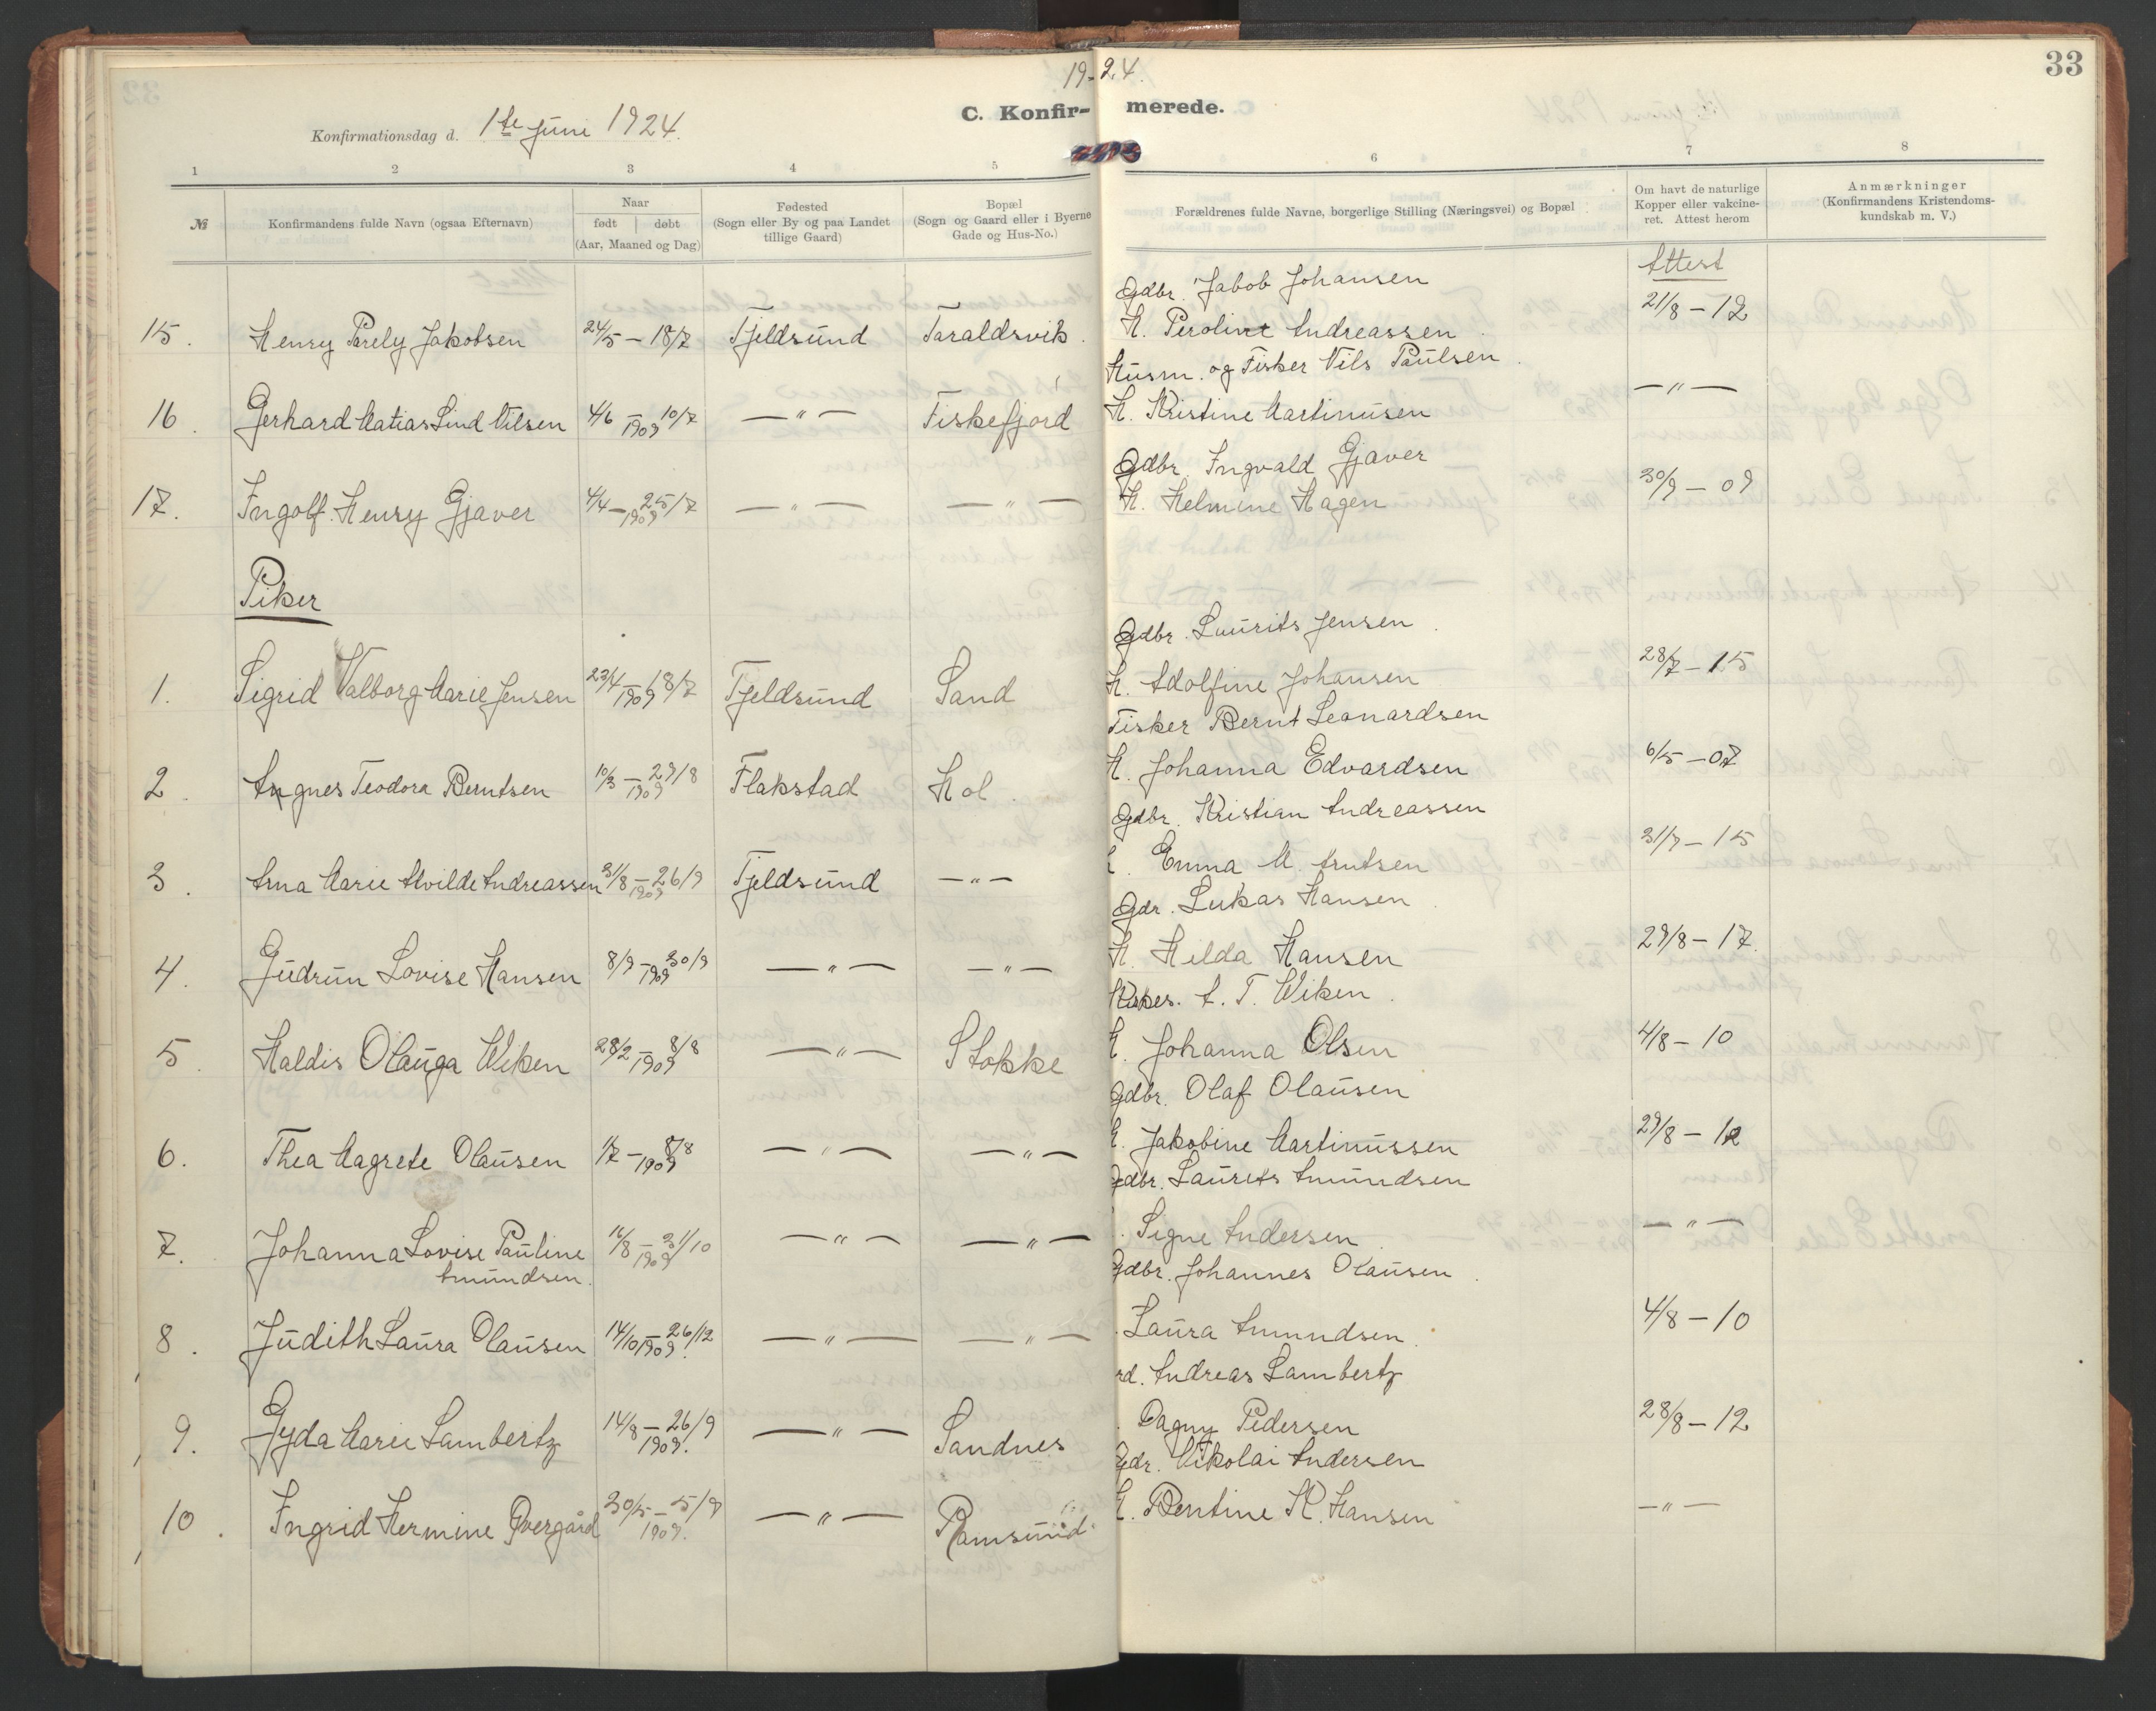 19-24.
33
Konfirmationsdag d. 1ste Juni 1924.
C. Konfirmerede.
1 2 3 4 5 6 7 8
№
Konfirmandens fulde Navn (ogsaa Efternavn)
Naar
født | døbt
(Aar, Maaned og Dag)
Fødested
(Sogn eller By og paa Landet
tillige Gaard)
Bopæl
(Sogn og Gaard eller i Byerne
Gade og Hus-No.)
Forældrenes fulde Navne, borgerlige Stilling (Næringsvei) og Bopæl
Om havt de naturlige
Kopper eller vakcine-
ret. Attest herom
Anmærkninger
(Konfirmandens Kristendoms-
kundskab m. V.)
Attest
Gdbr. Jabob Johansen
15. Henry Parely Jakobsen 24/5 — 18/7 Tjeldsund Taraldsvik. H. Peroline Andreassen 21/8 — 12
Husm. og Fisker Nils Paulsen
16. Gerhard Matias Lind Nilsen 4/6 — 10/7 1909 — " — Fiskefjord H. Kristine Martinusen — " —
Gdbr. Ingvald Gjæver
17. Ingolf Henry Gjaver 4/4 — 25/7 1909 — " — — " — H. Helmine Hagen 30/9 — 09
Piker
Gdbr. Laurits Jensen
1. Sigrid Valborg Marie Jensen 23/4 — 18/7 1909 Tjeldsund Sand H. Adolfine Johansen 28/7 — 15
Fisker Bernt Leonardsen
2. Agnes Teodora Berntsen 10/3 — 29/8 1909 Flakstad Hol. H. Johanna Edvardsen 6/5 — 07
Gdbr. Kristian Andreassen
3. Arna Marie Alvilde Andreassen 31/8 — 26/9 1909 Tjeldsund — " — Emma M. Arntsen 31/7 — 15
Gdr. Lukas Hansen
4. Gudrun Lovise Hansen 8/9 — 30/9 1909 — " — — " — H. Hilda Hansen 29/8 — 17.
A. T. Wiken.
5. Haldis Olauga Wiken 28/2 — 8/8 1909 — " — Stokke H. Johanna Olsen 4/8 — 10
Gdbr. Olaf Olausen
6. Thea Magrete Olausen 1/7 — 8/8 1909 — " — — " — H. Jakobine Martinussen 29/8 — 12
Gdbr. Laurits Amundsen
7. Johanna Lovise Pauline 16/8 — 31/10 1909 — " — — " — Signe Andersen — " —
Amundsen.
Gdbr. Johannes Olausen.
8. Judith Laura Olausen 14/10 — 26/12 1909. — " — — " — Laura Amundsen. 4/8 — 10
Andreas Lambertz
9. Gyda Marie Lambertz 14/8 — 26/9 1909. — " — Sandnes Dagny Pedersen 28/8 — 12
Gdr. Nikolai Andersen
10. Ingrid Hermine Øvergård 30/5 — 5/9 1909. — " — Ramsund. H. Bentine K. Hansen — " —